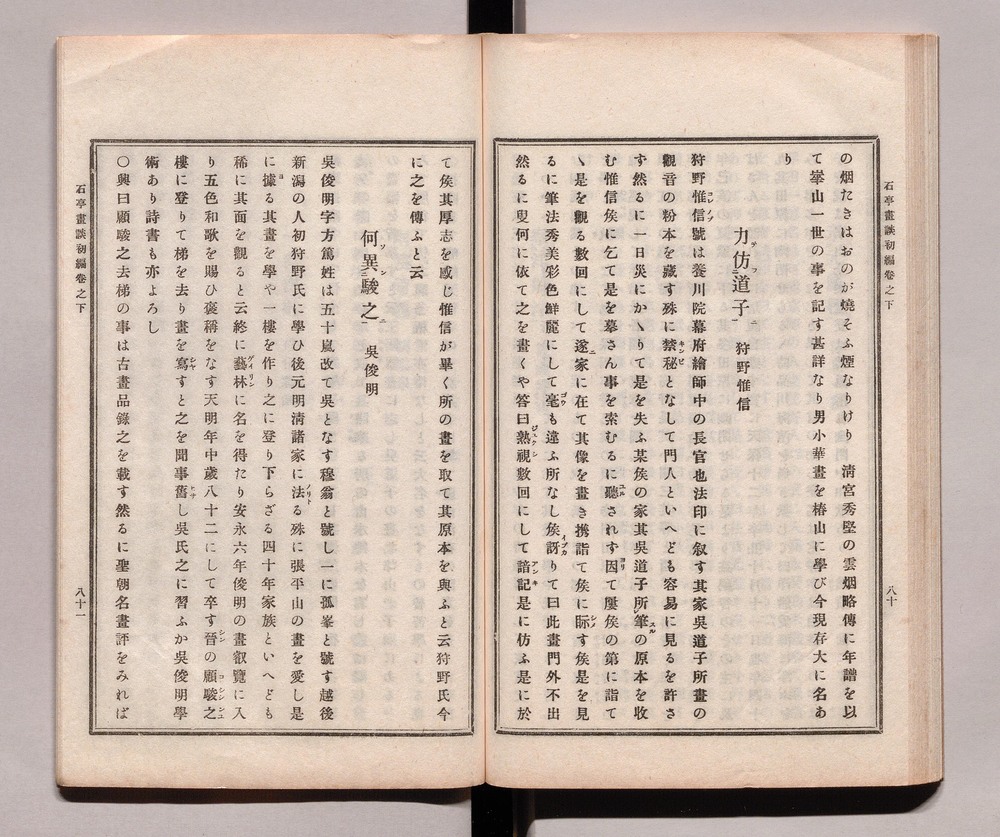 石亭畫談初編卷之下
八十
の烟たきはおのが燒そふ煙なりけり　清宮秀堅の雲烟略傳に年譜を以
て崋山一世の事を記す甚詳なり男小華畫を椿山に學び今現存大に名あ
り
力仿道子　狩野惟信
狩野惟信號は養川院幕府繪師中の長官也法印に叙す其家吳道子所畫の
觀音の粉本を藏す殊に禁秘となして門人といへども容易に見るを許さ
ず然るに一日災にかゝりて是を失ふ某矦の家其吳道子所筆の原本を收
む惟信矦に乞て是を摹さん事を索むるに聽されず因て屢矦の第に詣て
ヽ是を觀る數回にして遂家に在て其像を畫き携詣て矦に眎す矦是を見
るに筆法秀美彩色鮮麗にして毫も違ふ所なし矦訝りて曰此畫門外不出
然るに叟何に依て之を畫くや答曰熟視數回にして諳記是に仿ふ是に於
て矦其厚志を感じ惟信が畢く所の畫を取て其原本を與ふと云狩野氏今
に之を傳ふと云
何異駿之　吳俊明
吳俊明字方篤姓は五十嵐改て吳となす穆翁と號し一に孤峯と號す越後
新潟の人初狩野氏に學ひ後元明淸諸家に法る殊に張平山の畫を愛し是
に據る其畫を學や一樓を作り之に登り下らざる四十年家族といへども
稀に其面を觀ると云終に藝林に名を得たり安永六年俊明の畫叡覽に入
り五色和歌を賜ひ褒稱をなす天明年中歲八十二にして卒す晉の顧駿之
樓に登りて梯を去り畫を寫すと之を聞事舊し吳氏之に習ふか吳俊明學
術あり詩書も亦よろし
○興曰顧駿之去梯の事は古畫品錄之を載す然るに聖朝名畫評をみれば
石亭畫談初編卷之下
八十一